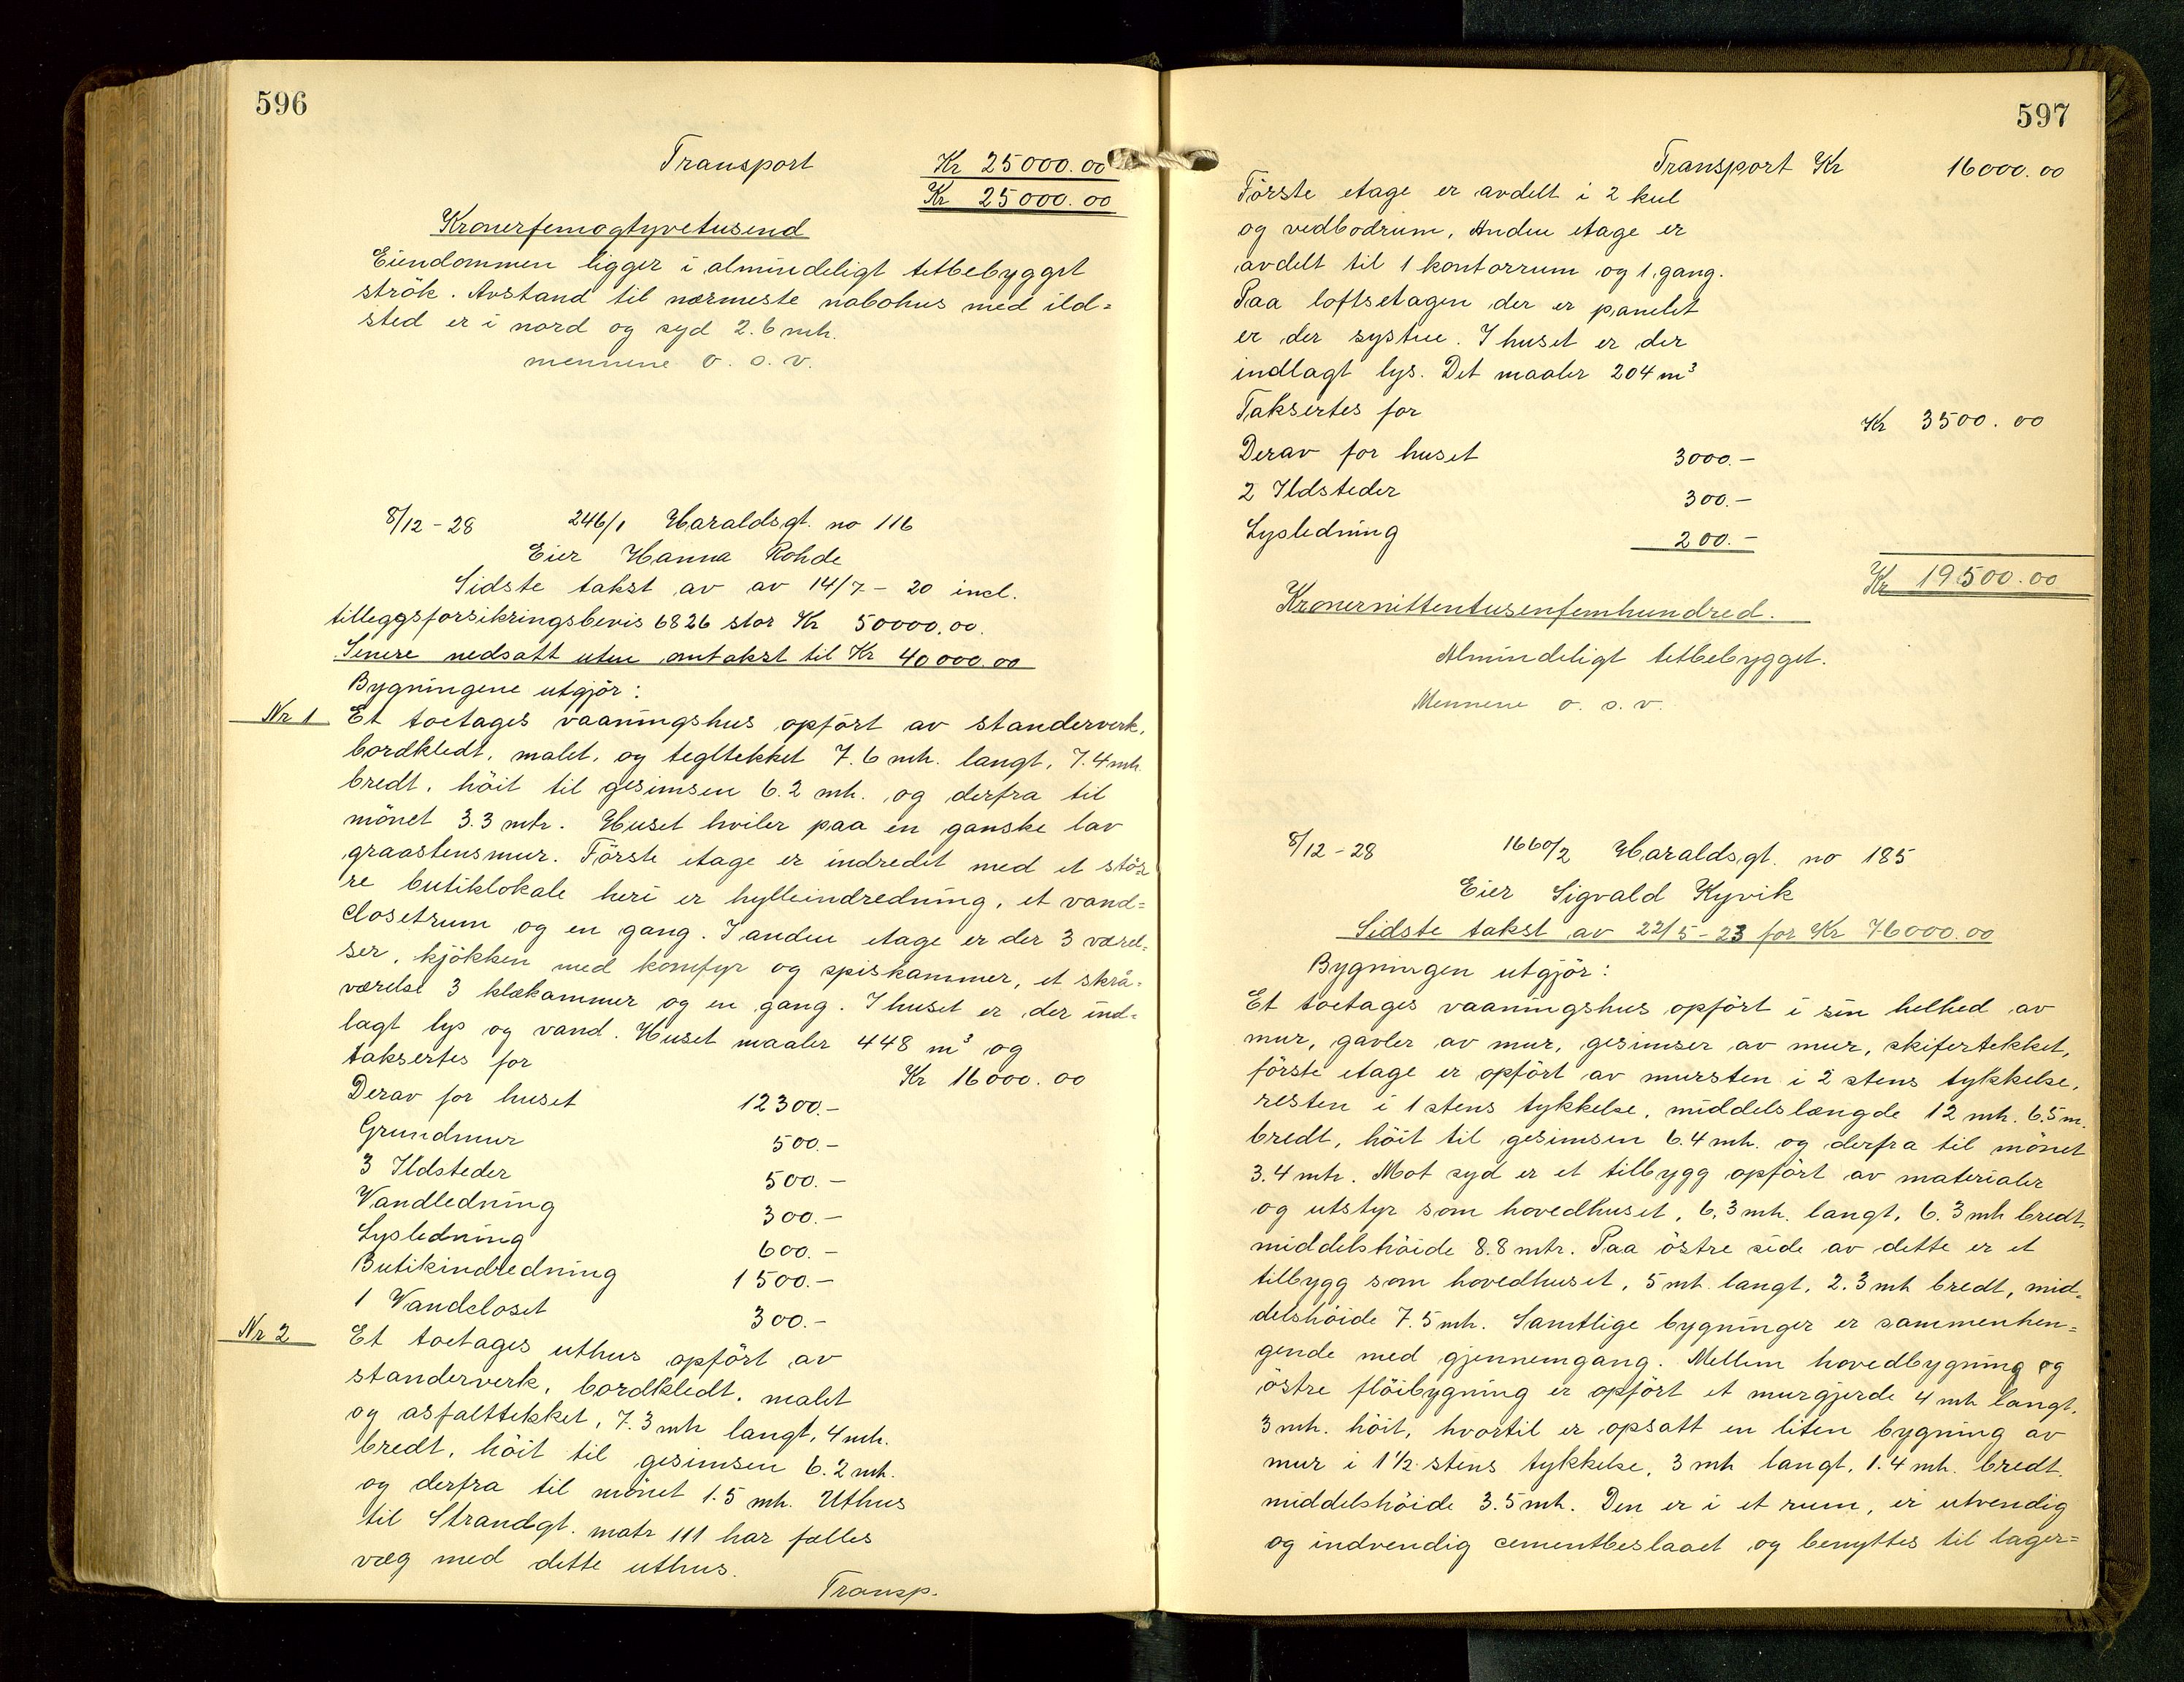 596
Transport Kr 25000.00
Kr 25000.00
Kronerfemogtyvetusend
Eiendommen ligger i almindeligt tetbebygget
strök. Avstand til nærmeste nabohus med ild=
sted er i nord og syd 2.6 mtr.
mennene o. s. v.
8/12-28 246/1 Haraldsgt. no 116
Eier Hanna Rohde
Sidste takst av av 14/7-20 incl.
tilleggsforsikringsbevis 6826 stor Kr 50000.00.
Senere nedsatt uten omtakst til Kr 40000.00
Bygningene utgjör:
Nr 1 Et toetages vaaningshus opfört av standerverk,
bordkledt, malet, og tegltekket 7.6 mtr. langt, 7.4 mtr.
bredt, höit til gesimsen 6.2 mtr. og derfra til
mönet 3.3 mtr. Huset hviler paa en ganske lav
graastensmur. Förste etage er indredet med et stör
re butiklokale heri er hylleindredning, et vand=
closetrum og en gang. I anden etage er der 3 værel=
ser, kjökken med komfyr og spiskammer, et skrå=
værelse 3 klækammer og en gang. I huset er der ind=
lagt lys og vand. Huset maaler 448 m³ og
taksertes for Kr 16000.00
Derav for huset 12300.-
Grundmur 500.-
3 Ildsteder 500.-
Vandledning 300.-
Lysledning 600.-
Butikindredning 1500.-
1 Vandcloset 300.-
Nr 2 Et toetages uthus opfört av
standerverk, bordkledt, malet
og asfalttekket, 7.3 mtr langt, 4 mtr.
bredt, höit til gesimsen 6.2 mtr.
og derfra til mönet 1.5 mtr. Uthus
til Strandgt. matr 111 har fælles
væg med dette uthus.
Transp.
597
Transport Kr 16000.00
Förste etage er avdelt i 2 kul
og vedbodrum, Anden etage er
avdelt til 1 kontorrum og 1 gang.
Paa loftsetagen der er panelet
er der systue. I huset er der
indlagt lys. Det maaler 204 m³
Taksertes for Kr 3500.00
Derav for huset 3000.-
2 Ildsteder 300.-
Lysledning 200.-
Kr 19500.00
Kronernittentusenfemhundred.
Almindeligt tetbebygget.
Mennene o. s. v.
8/12-28 1660/2 Haraldsgt. no 185
Eier Sigvald Kyvik
Sidste takst av 22/5-23 for Kr 76000.00
Bygningen utgjör:
Et toetages vaaningshus opfört i sin helhed av
mur, gavler av mur, gesimser av mur, skifertekket,
förste etage er opfört av mursten i 2 stens tykkelse,
resten i 1 stens tykkelse, middelslængde 12 mtr. 6.5 m.
bredt, höit til gesimsen 6.4 mtr. og derfra til mönet
3.4 mtr. Mot syd er et tilbygg opfört av materialer
og utstyr som hovedhuset, 6.3 mtr. langt, 6.3 mtr bredt,
middelshöide 8.8 mtr. Paa östre side av dette er et
tilbygg som hovedhuset, 5 mtr. langt, 2.3 mtr bredt, mid=
delshöide 7.5 mtr. Samtlige bygninger er sammenhen=
gende med gjennemgang. Mellem hovedbygning og
östre flöibygning er opfört et murgjerde 4 mtr langt,
3 mtr. höit, hvortil er opsatt en liten bygning av
mur i 1½ stens tykkelse, 3 mtr langt, 1.4 mtr. bredt,
middelshöide 3.5 mtr. Den er i et rum, er utvendig
og indvendig cementbeslaaet og benyttes til lager=